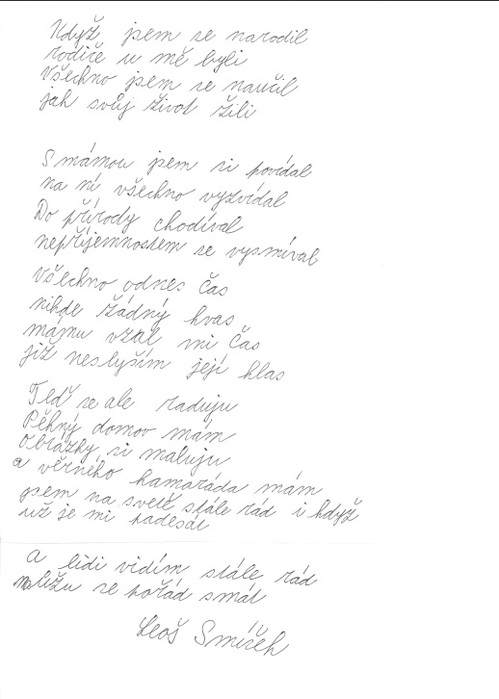 Když jsem se narodil
rodiče u mě byli
Všechno jsem se naučil
jak svůj život žili
S mámou jsem si povídal
na ní všechno vyzvídal
Do přírody chodíval
nepříjemnostem se vysmíval
Všechno odnes čas
nikde žádný kvas
mámu vzal mi čas
již neslyším její hlas
Teď se ale raduju
Pěkný domov mám
Obrázky si maluju
a věrného kamaráda mám
jsem na světě stále rád i když
už je mi padesát
a lidi vidím stále rád
můžu se pořád smát
Leoš Smíšek